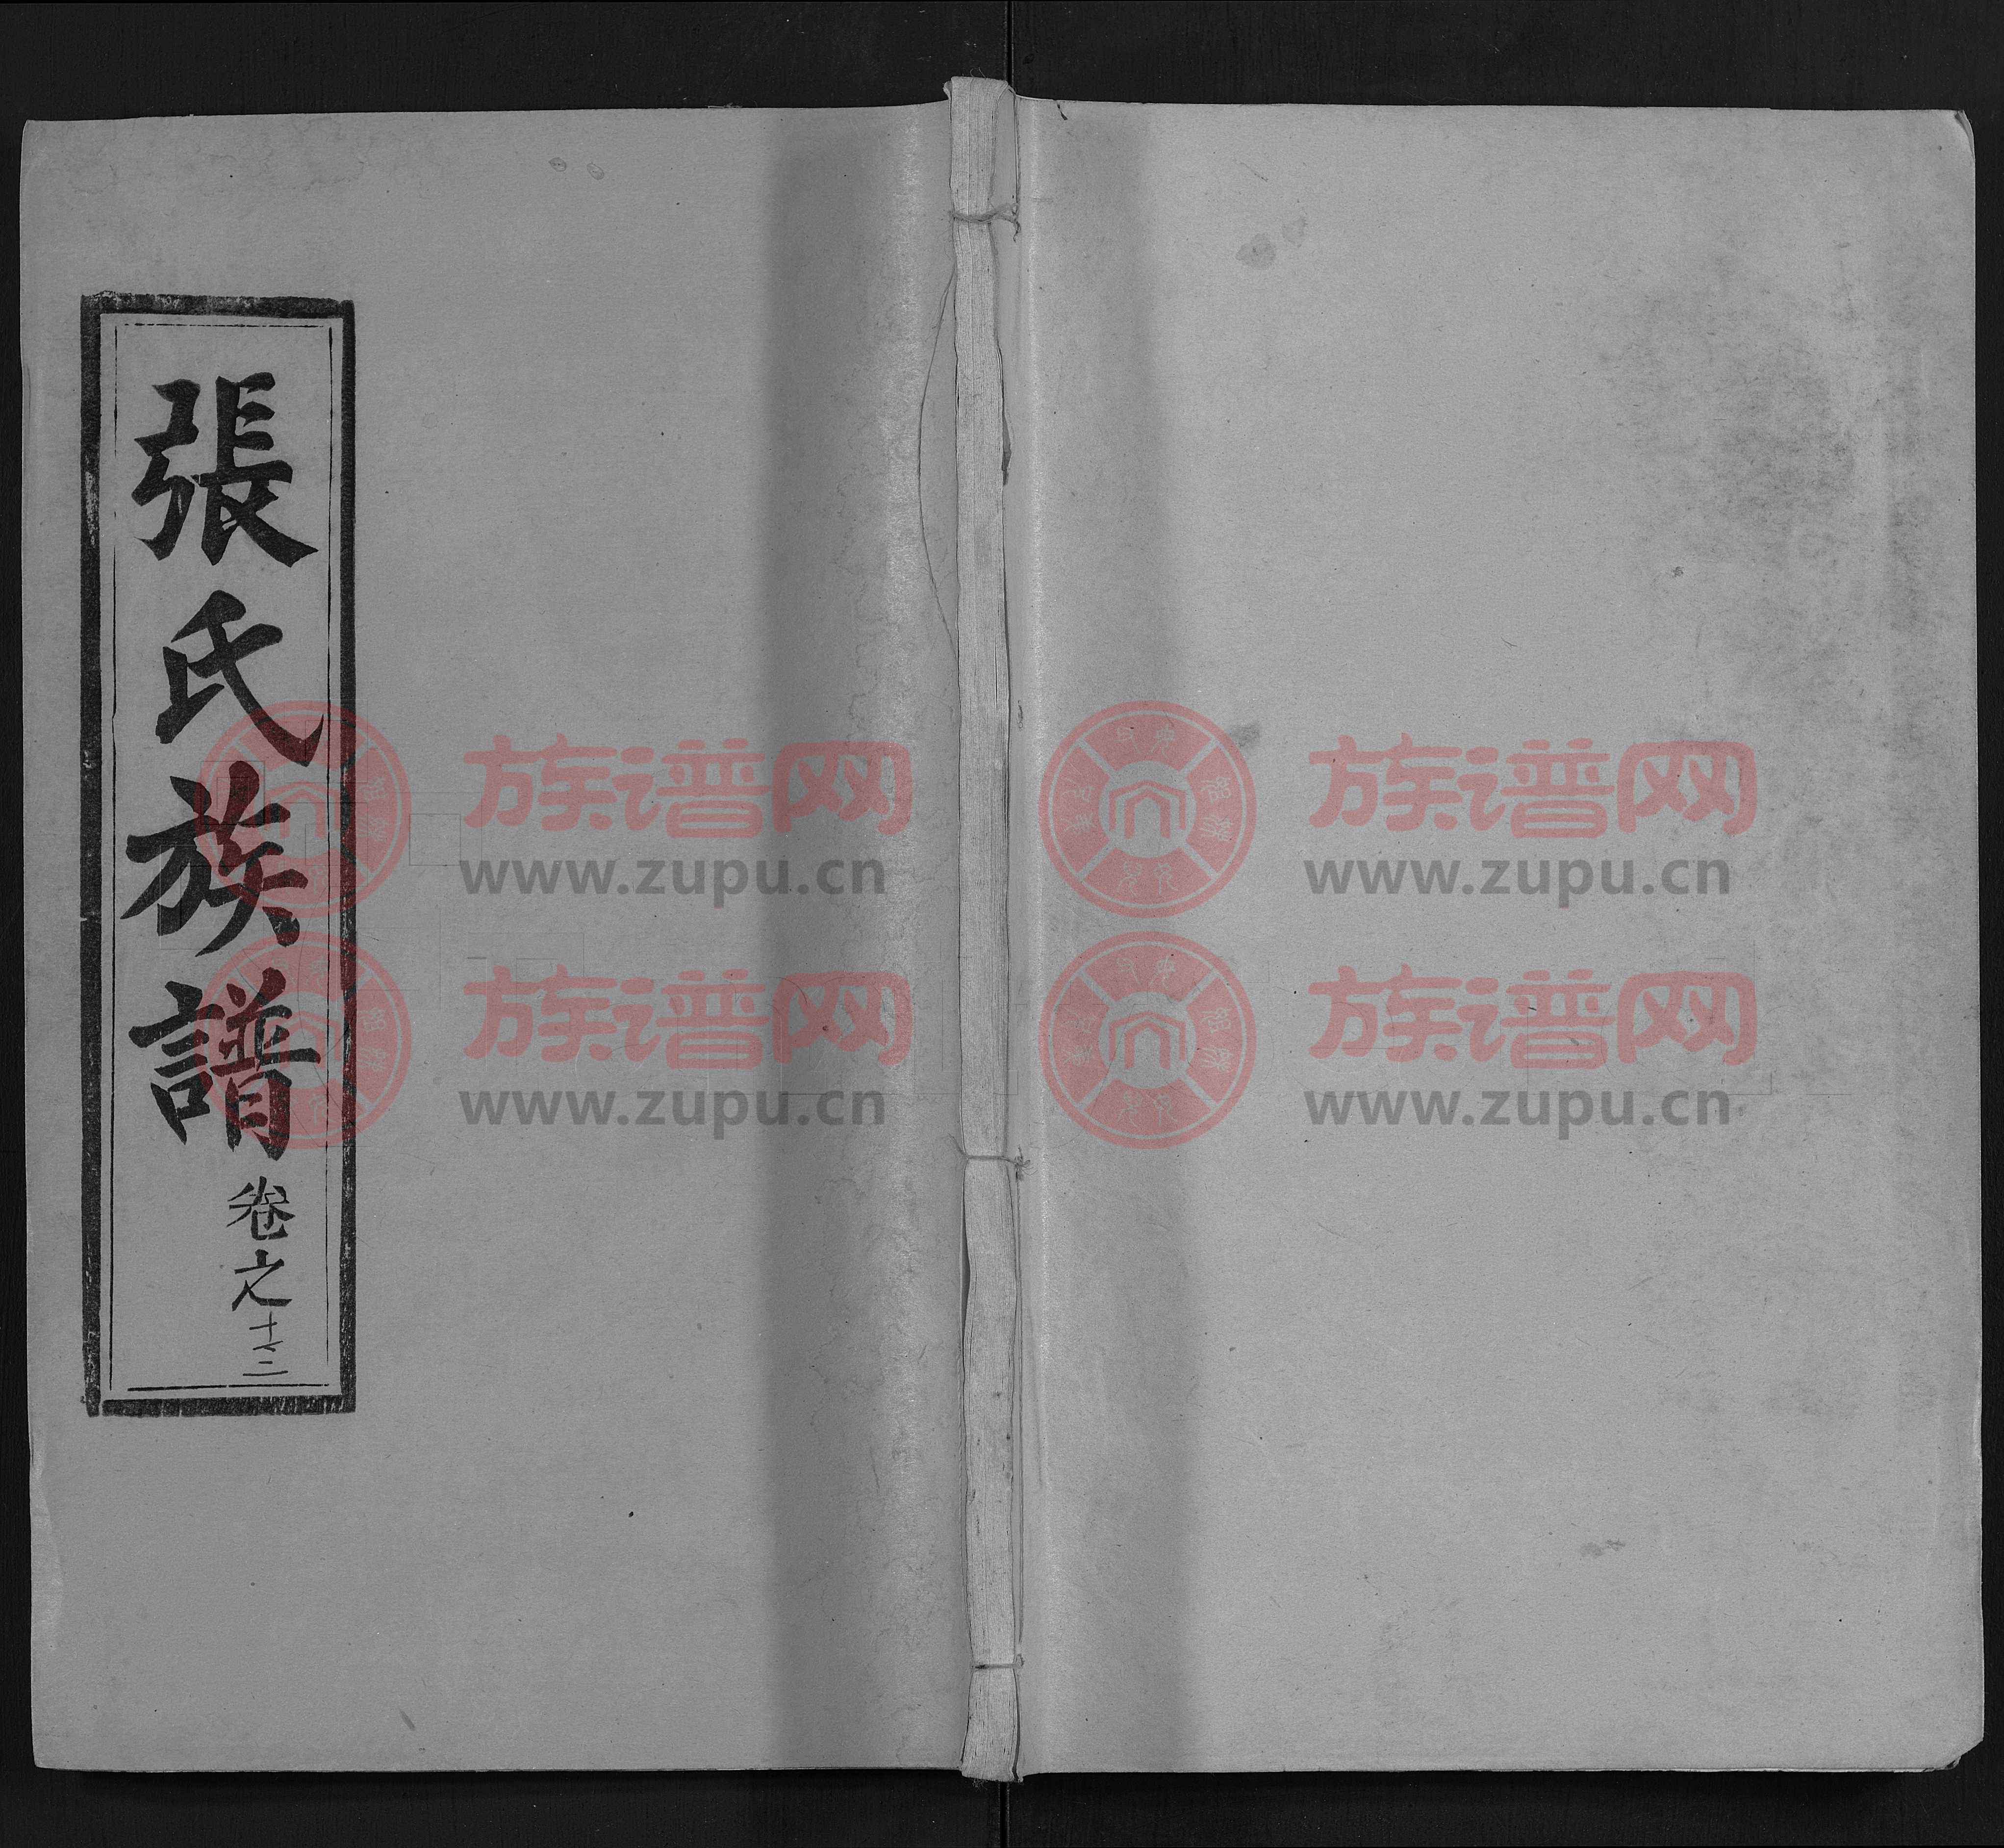 張氏族譜
卷之十六二
族谱网
www.zupu.cn
族谱网
www.zupu.cn
族谱网
www.zupu.cn
族谱网
www.zupu.cn